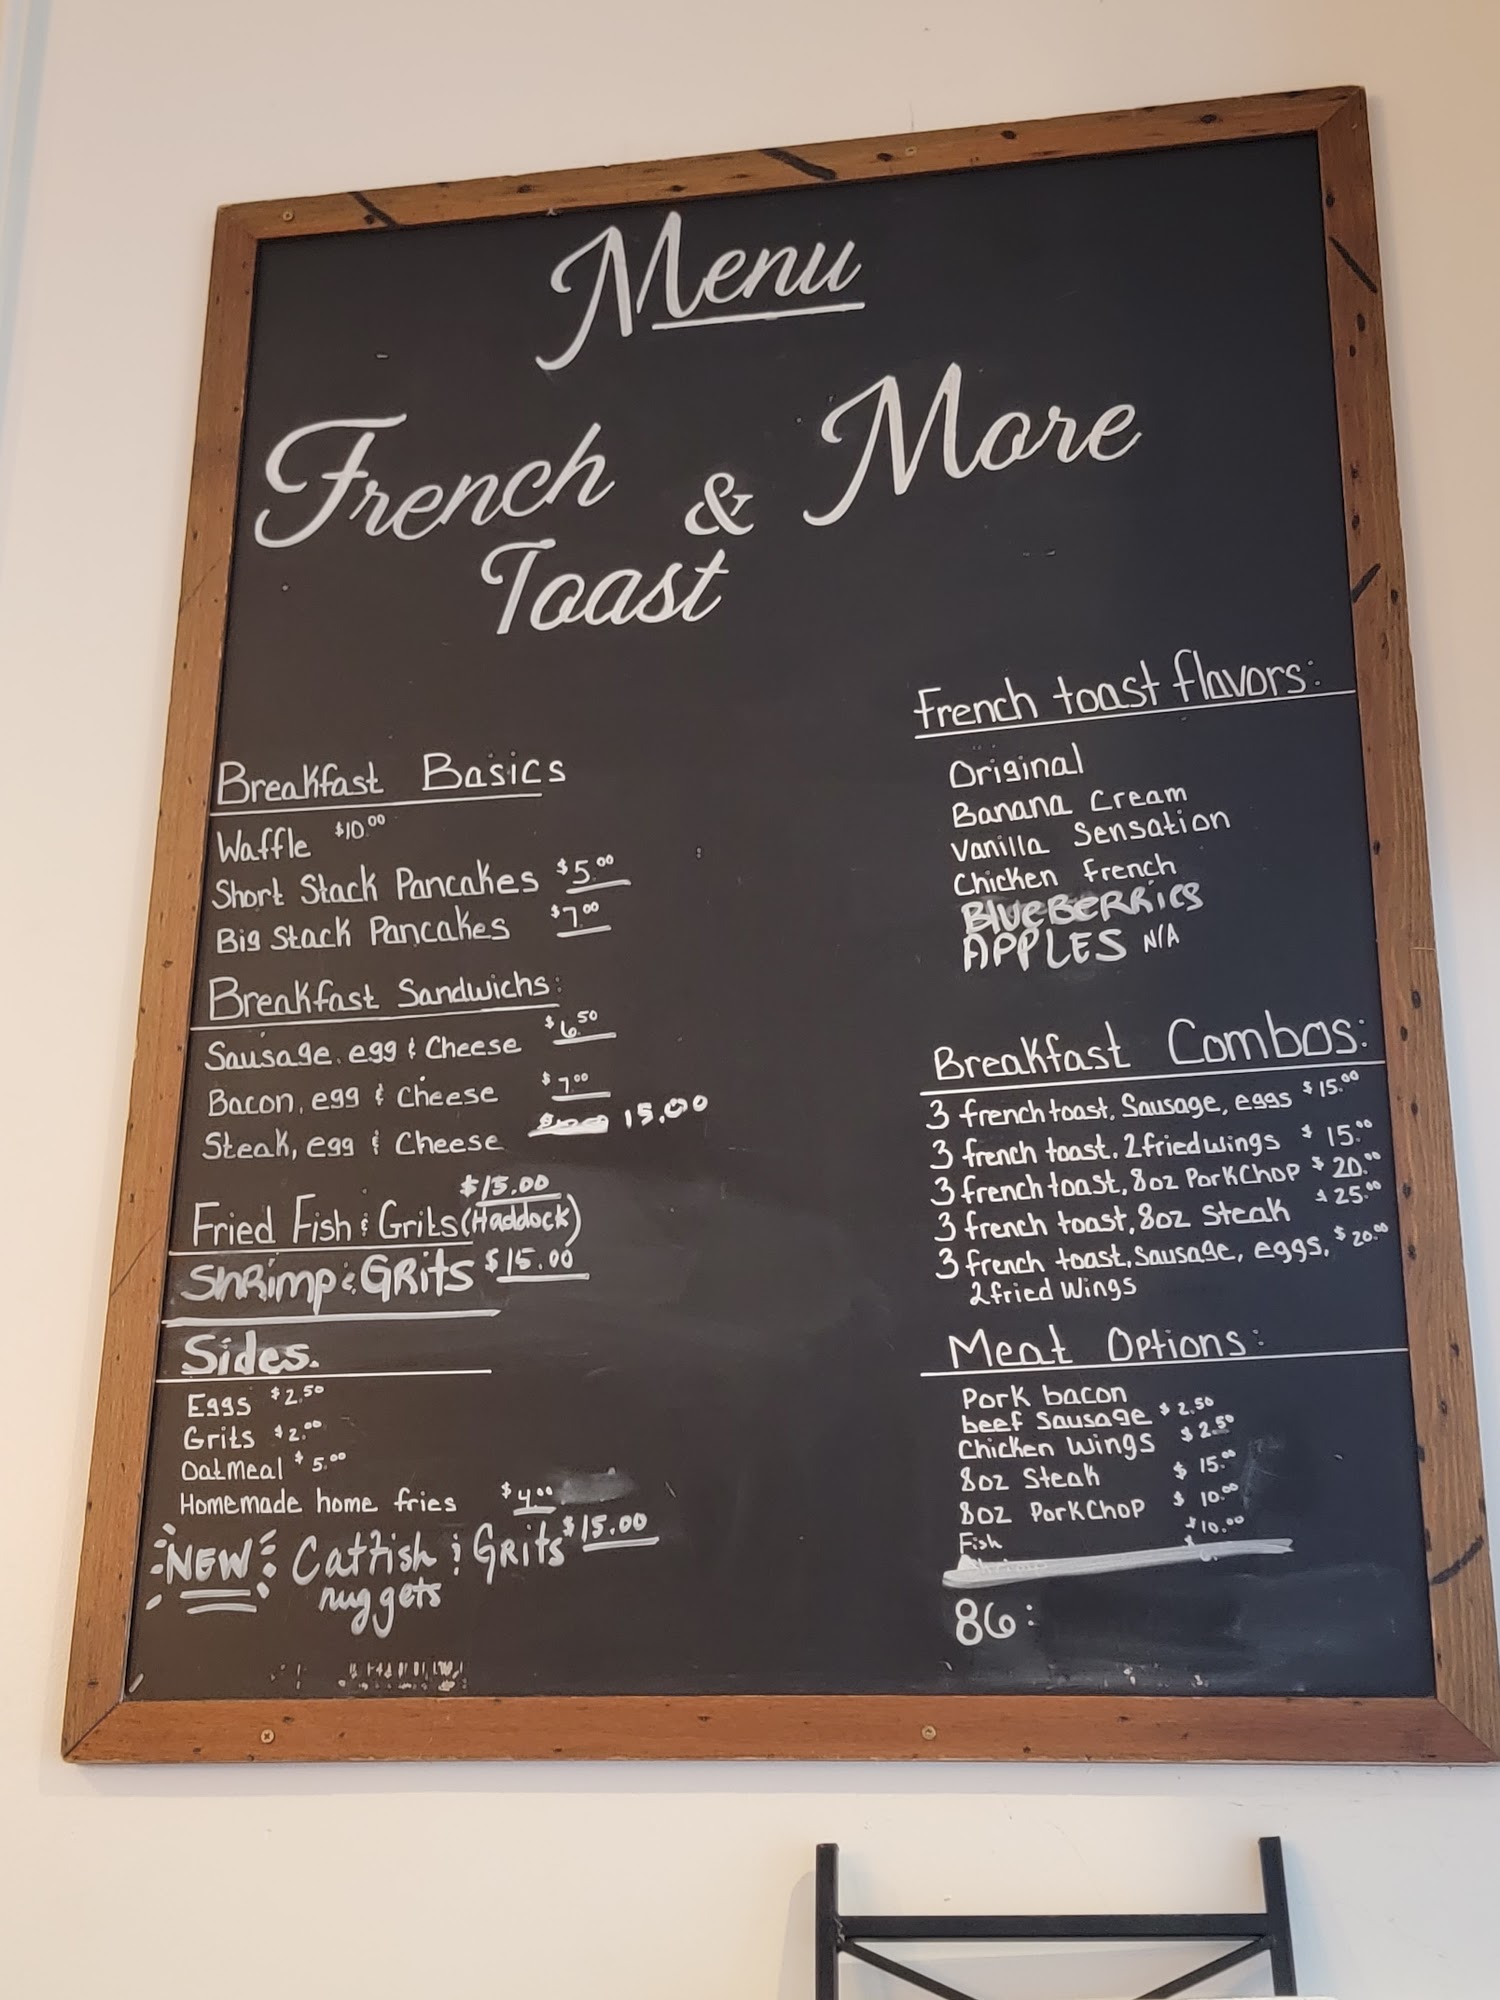 Menu
French & More
Toast
Breakfast Basics
Waffle $10.00
Short Stack Pancakes $5.00
Big Stack Pancakes $7.00
Breakfast Sandwichs:
Sausage, egg & Cheese $6.50
Bacon, egg & Cheese $7.00
Steak, egg & Cheese 15.00
$15.00
Fried Fish & Grits (Haddock)
Shrimp & Grits $15.00
Sides.
Eggs $2.50
Grits $2.00
Oatmeal $5.00
Homemade home fries $4.00
NEW Catfish & Grits $15.00
nuggets
French toast flavors:
Original
Banana Cream
Vanilla Sensation
Chicken french
BlueBerries
APPLES N/A
Breakfast Combos:
3 french toast, Sausage, eggs $15.00
3 french toast, 2 fried wings $15.00
3 french toast, 8oz PorkChop $20.00
3 french toast, 8oz Steak $25.00
3 french toast, Sausage, eggs, $20.00
2 fried Wings
Meat Options:
Pork bacon
beef Sausage $2.50
Chicken Wings $2.50
8oz Steak $15.00
8oz PorkChop $10.00
Fish $10.00
86: